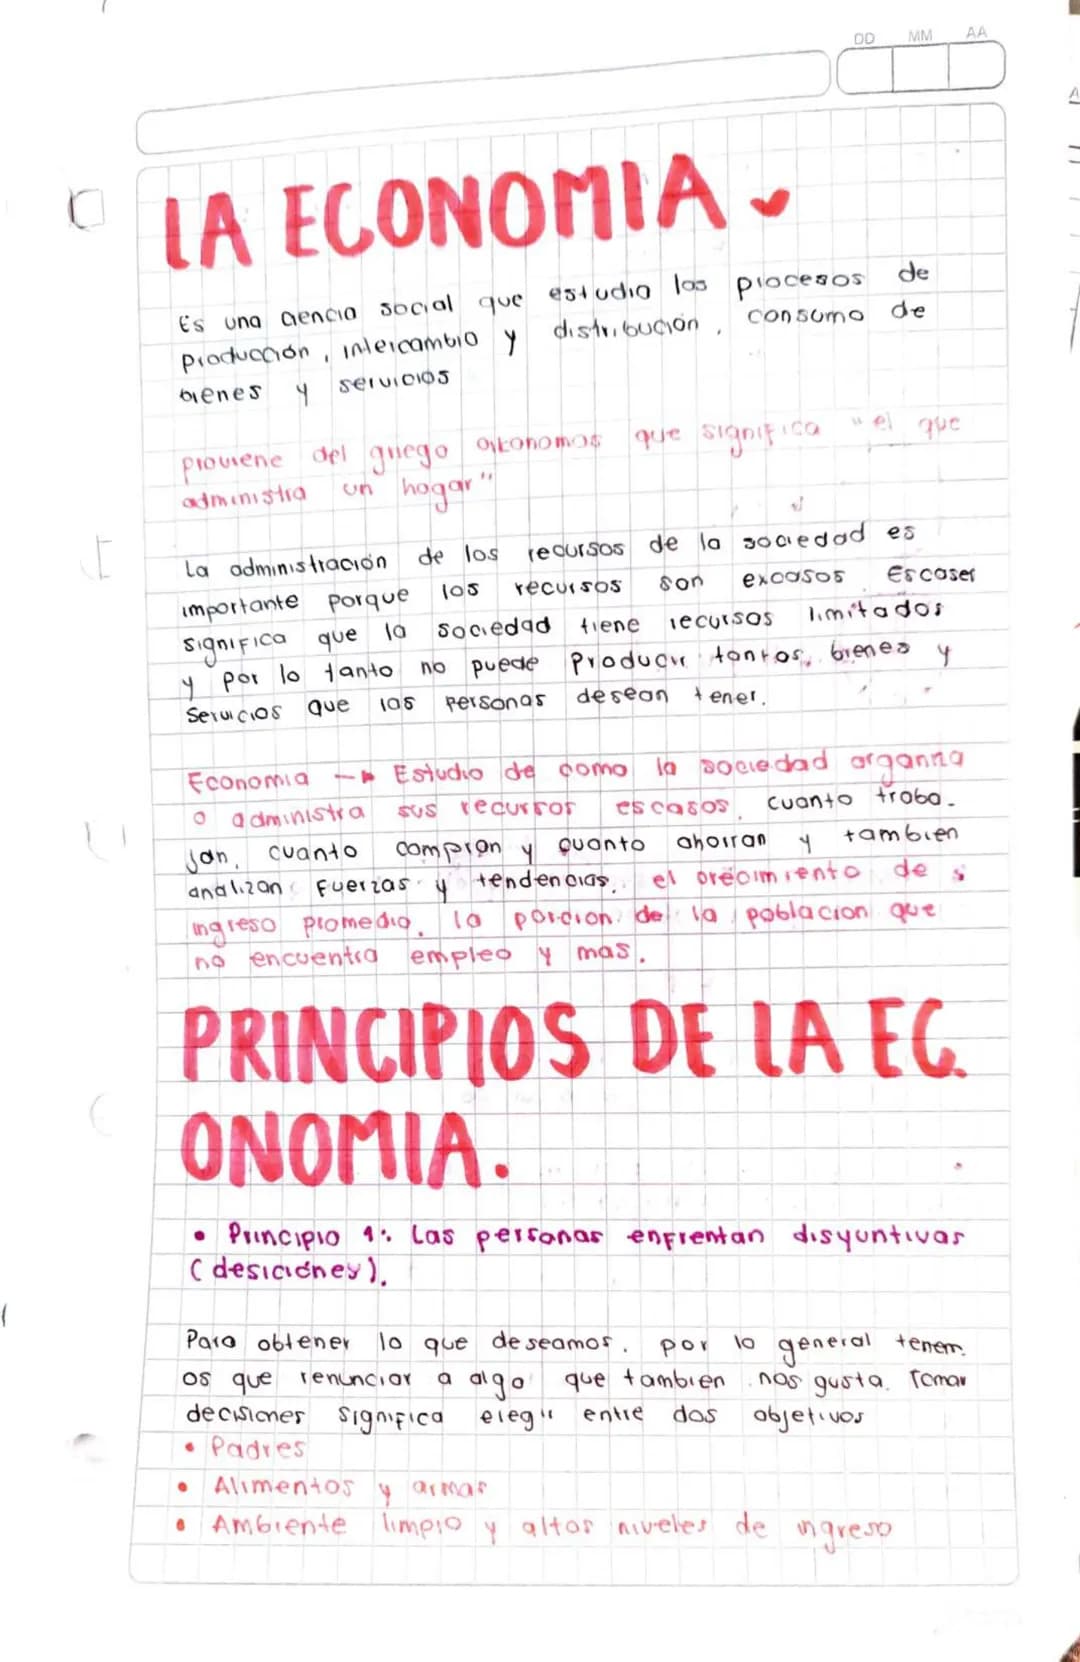 DD MM AA
LA ECONOMIA
Es una ciencia social que estudia los procesos de
producción, intercambio y distribución, consumo de
bienes y servicios
proviene del griego oikonomos que significa "el que
administra un hogar"
La administración de los recursos de la sociedad es
importante porque los recursos son excasos Escases
significa que la sociedad tiene recursos limitados
y por lo tanto no puede producir tantos bienes y
servicios que las personas desean tener.
Economia → Estudio de como la sociedad organiza
o administra sus recursos escasos, cuanto traba-
jan, cuanto compran y cuanto ahorran y tambien
analizan fuerzas y tendencias, el crecimiento de
ingreso promedio, la porcion de la poblacion que
no encuentra empleo y mas.
PRINCIPIOS DE LA EC
ONOMIA.
• Principio 1: Las personas enfrentan disyuntivas
(desiciónes).
Para obtener lo que deseamos, por lo general tenem
os que renunciar a algo que tambien nos gusta. Tomar
decisiones significa elegir entre dos objetivos
• Padres
• Alimentos y armas
• Ambiente limpio y altos niveles de ingreso